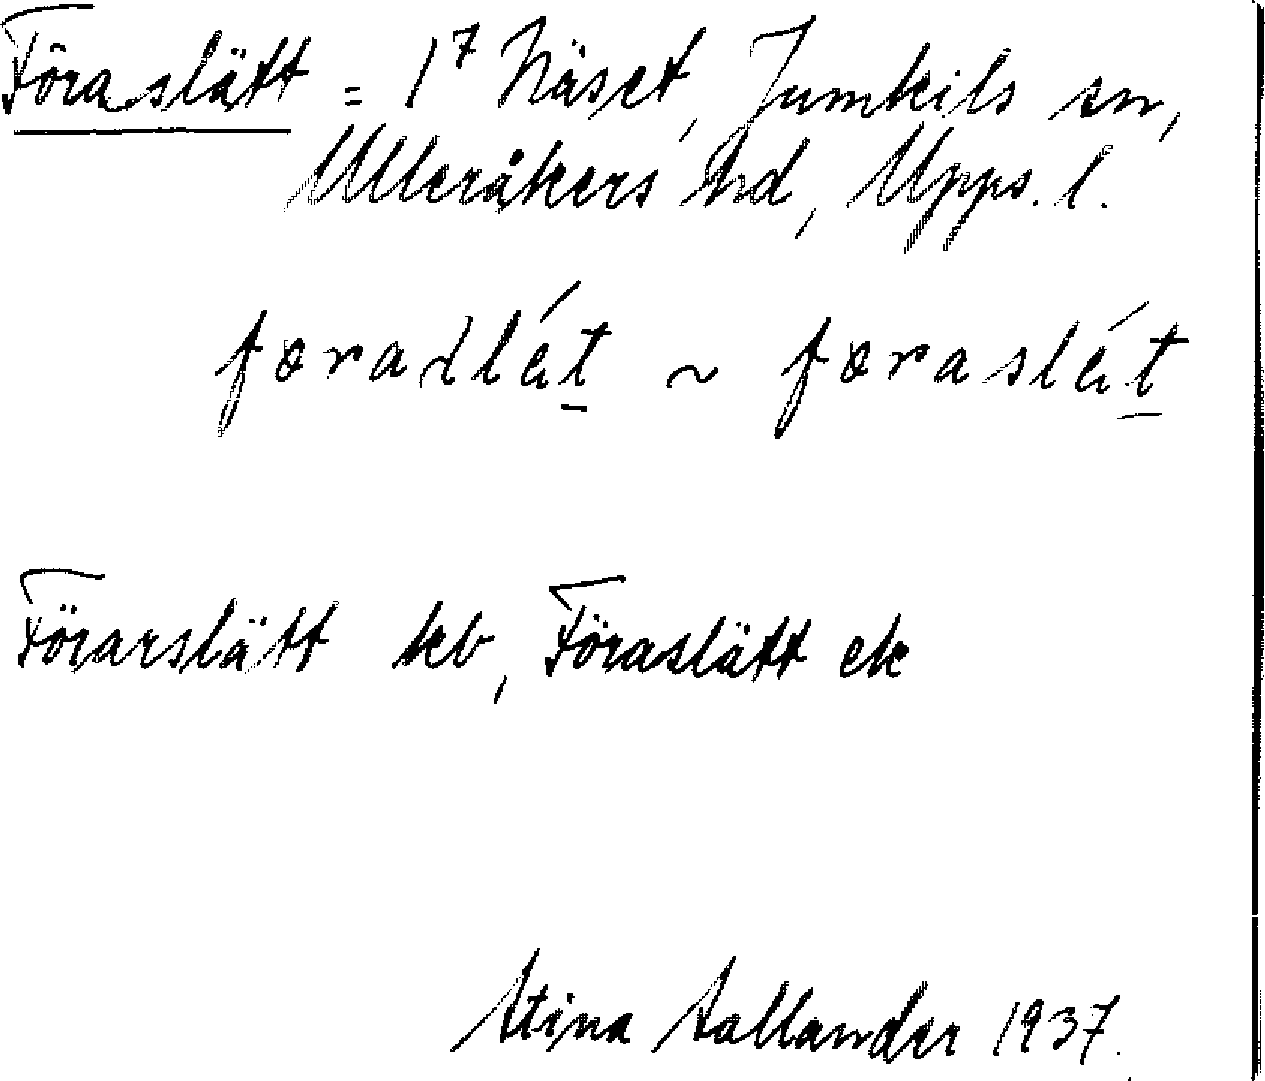 Föraslätt = 1⁷ Näset, Jumkils sn,
Ulleråkers hd, Upps. l.
færaslä́t ~ færaslä́t
Förarslätt kb, Föraslätt ek
Stina Sallander 1937.